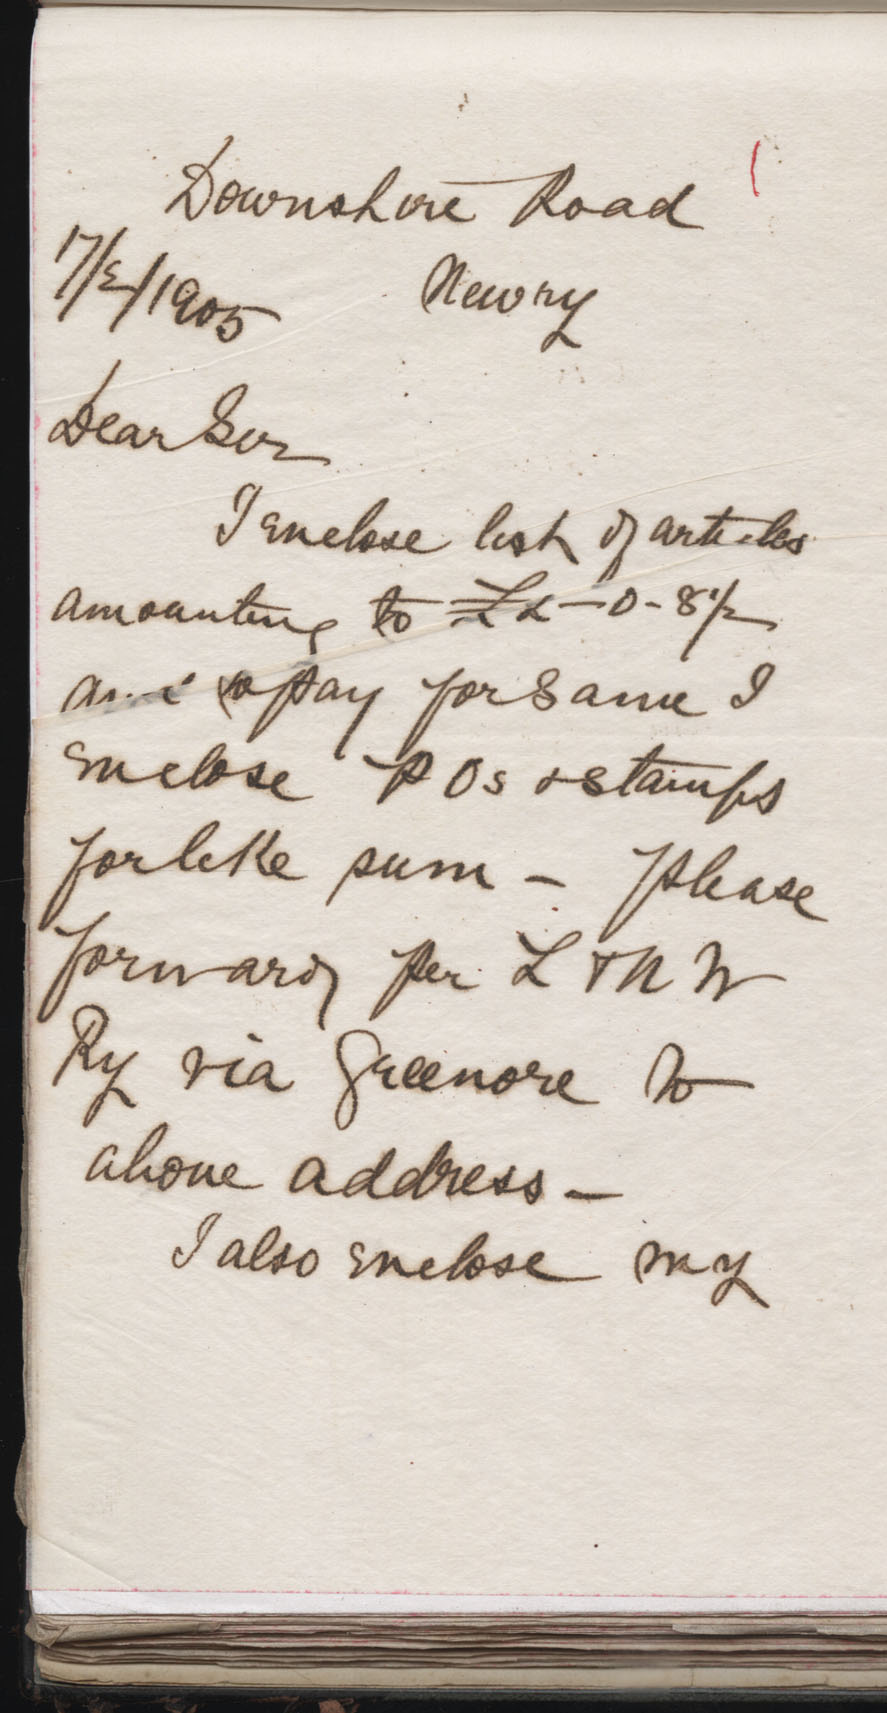 Downshire Road
Newry
17/2/1905
Dear Sir
I enclose list of articles
amounting to £2-0-8½
and to pay for same I
enclose P Os & stamps
for like sum - please
forward per L & N W
Ry via Greenore to
above address -
I also enclose my